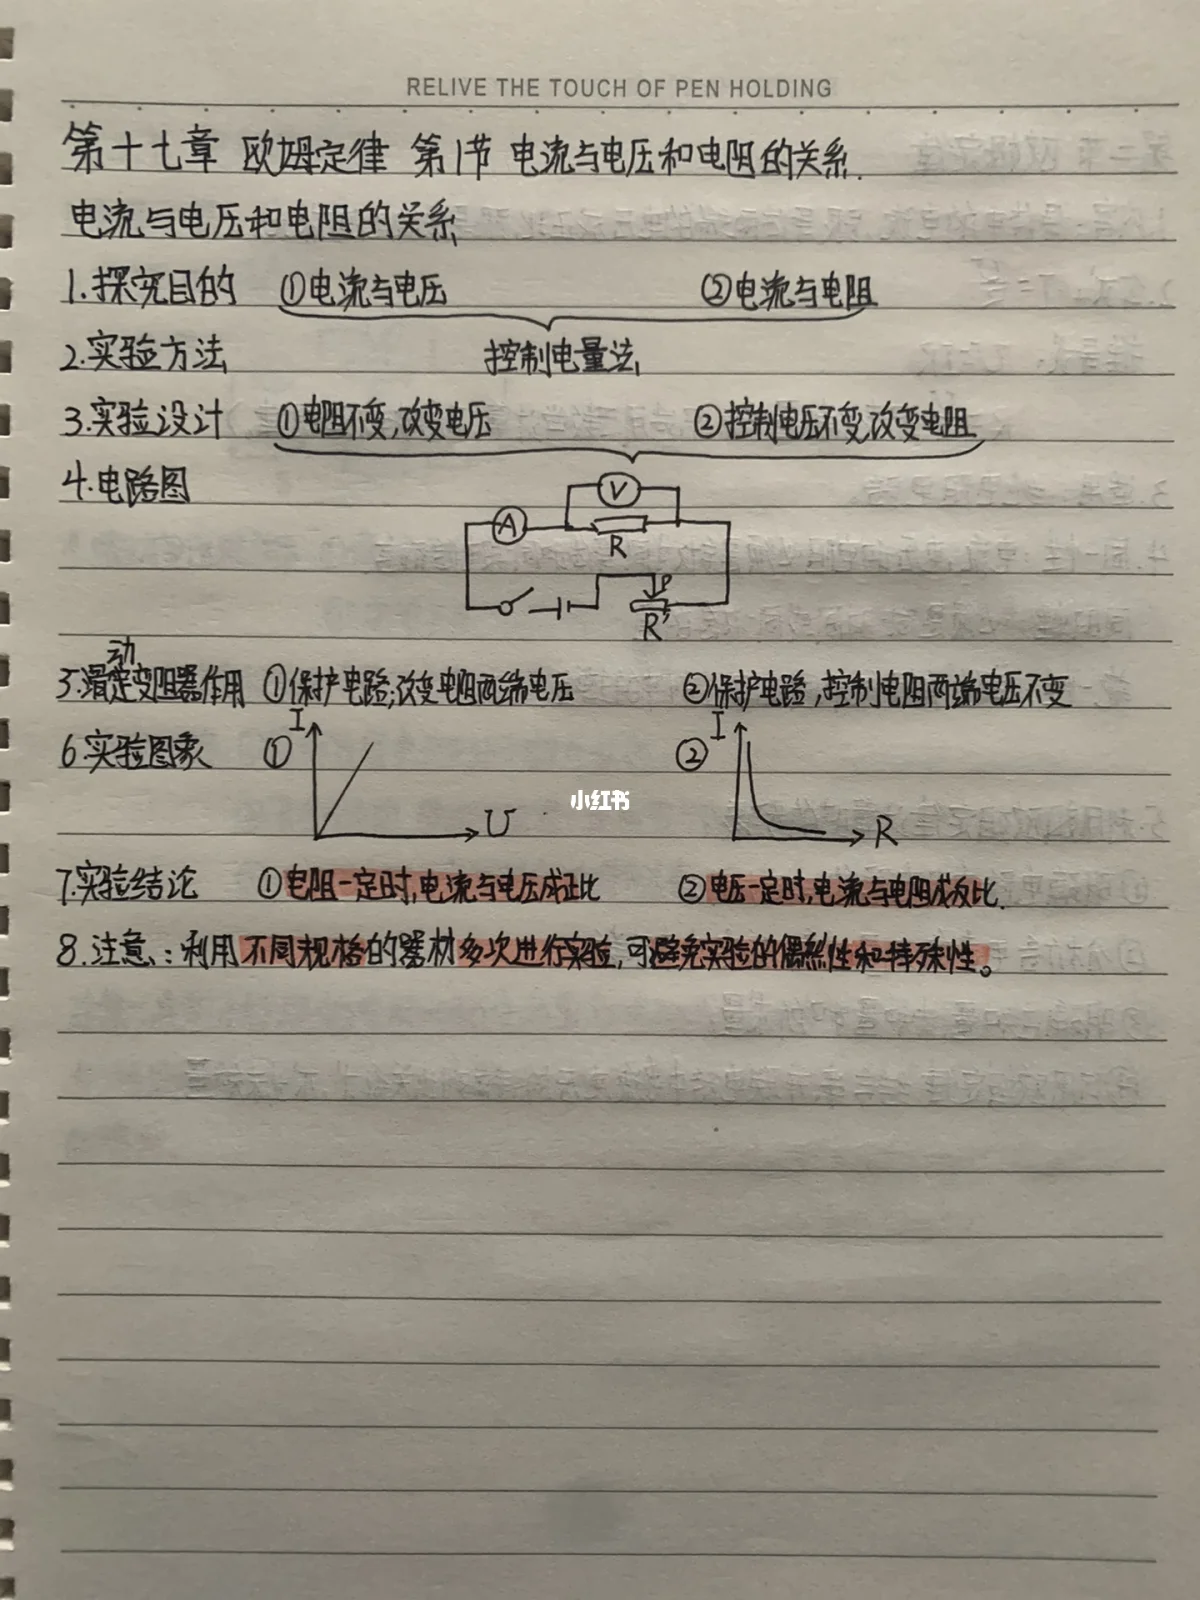 RELIVE THE TOUCH OF PEN HOLDING
第十七章 欧姆定律 第1节 电流与电压和电阻的关系.
电流与电压和电阻的关系
1.探究目的 ①电流与电压 ②电流与电阻
2.实验方法 控制电量法
3.实验设计 ①电阻不变,改变电压 ②控制电压不变,改变电阻
4.电路图
V
A
R
P
R'
动
5.滑定变阻器作用 ①保护电路;改变电阻两端电压 ②保护电路,控制电阻两端电压不变
I I
6.实验图象 ① ②
小红书
U R
7.实验结论 ①电阻一定时,电流与电压成正比 ②电压一定时,电流与电阻成反比.
8.注意:利用不同规格的器材多次进行实验,可避免实验的偶然性和特殊性。